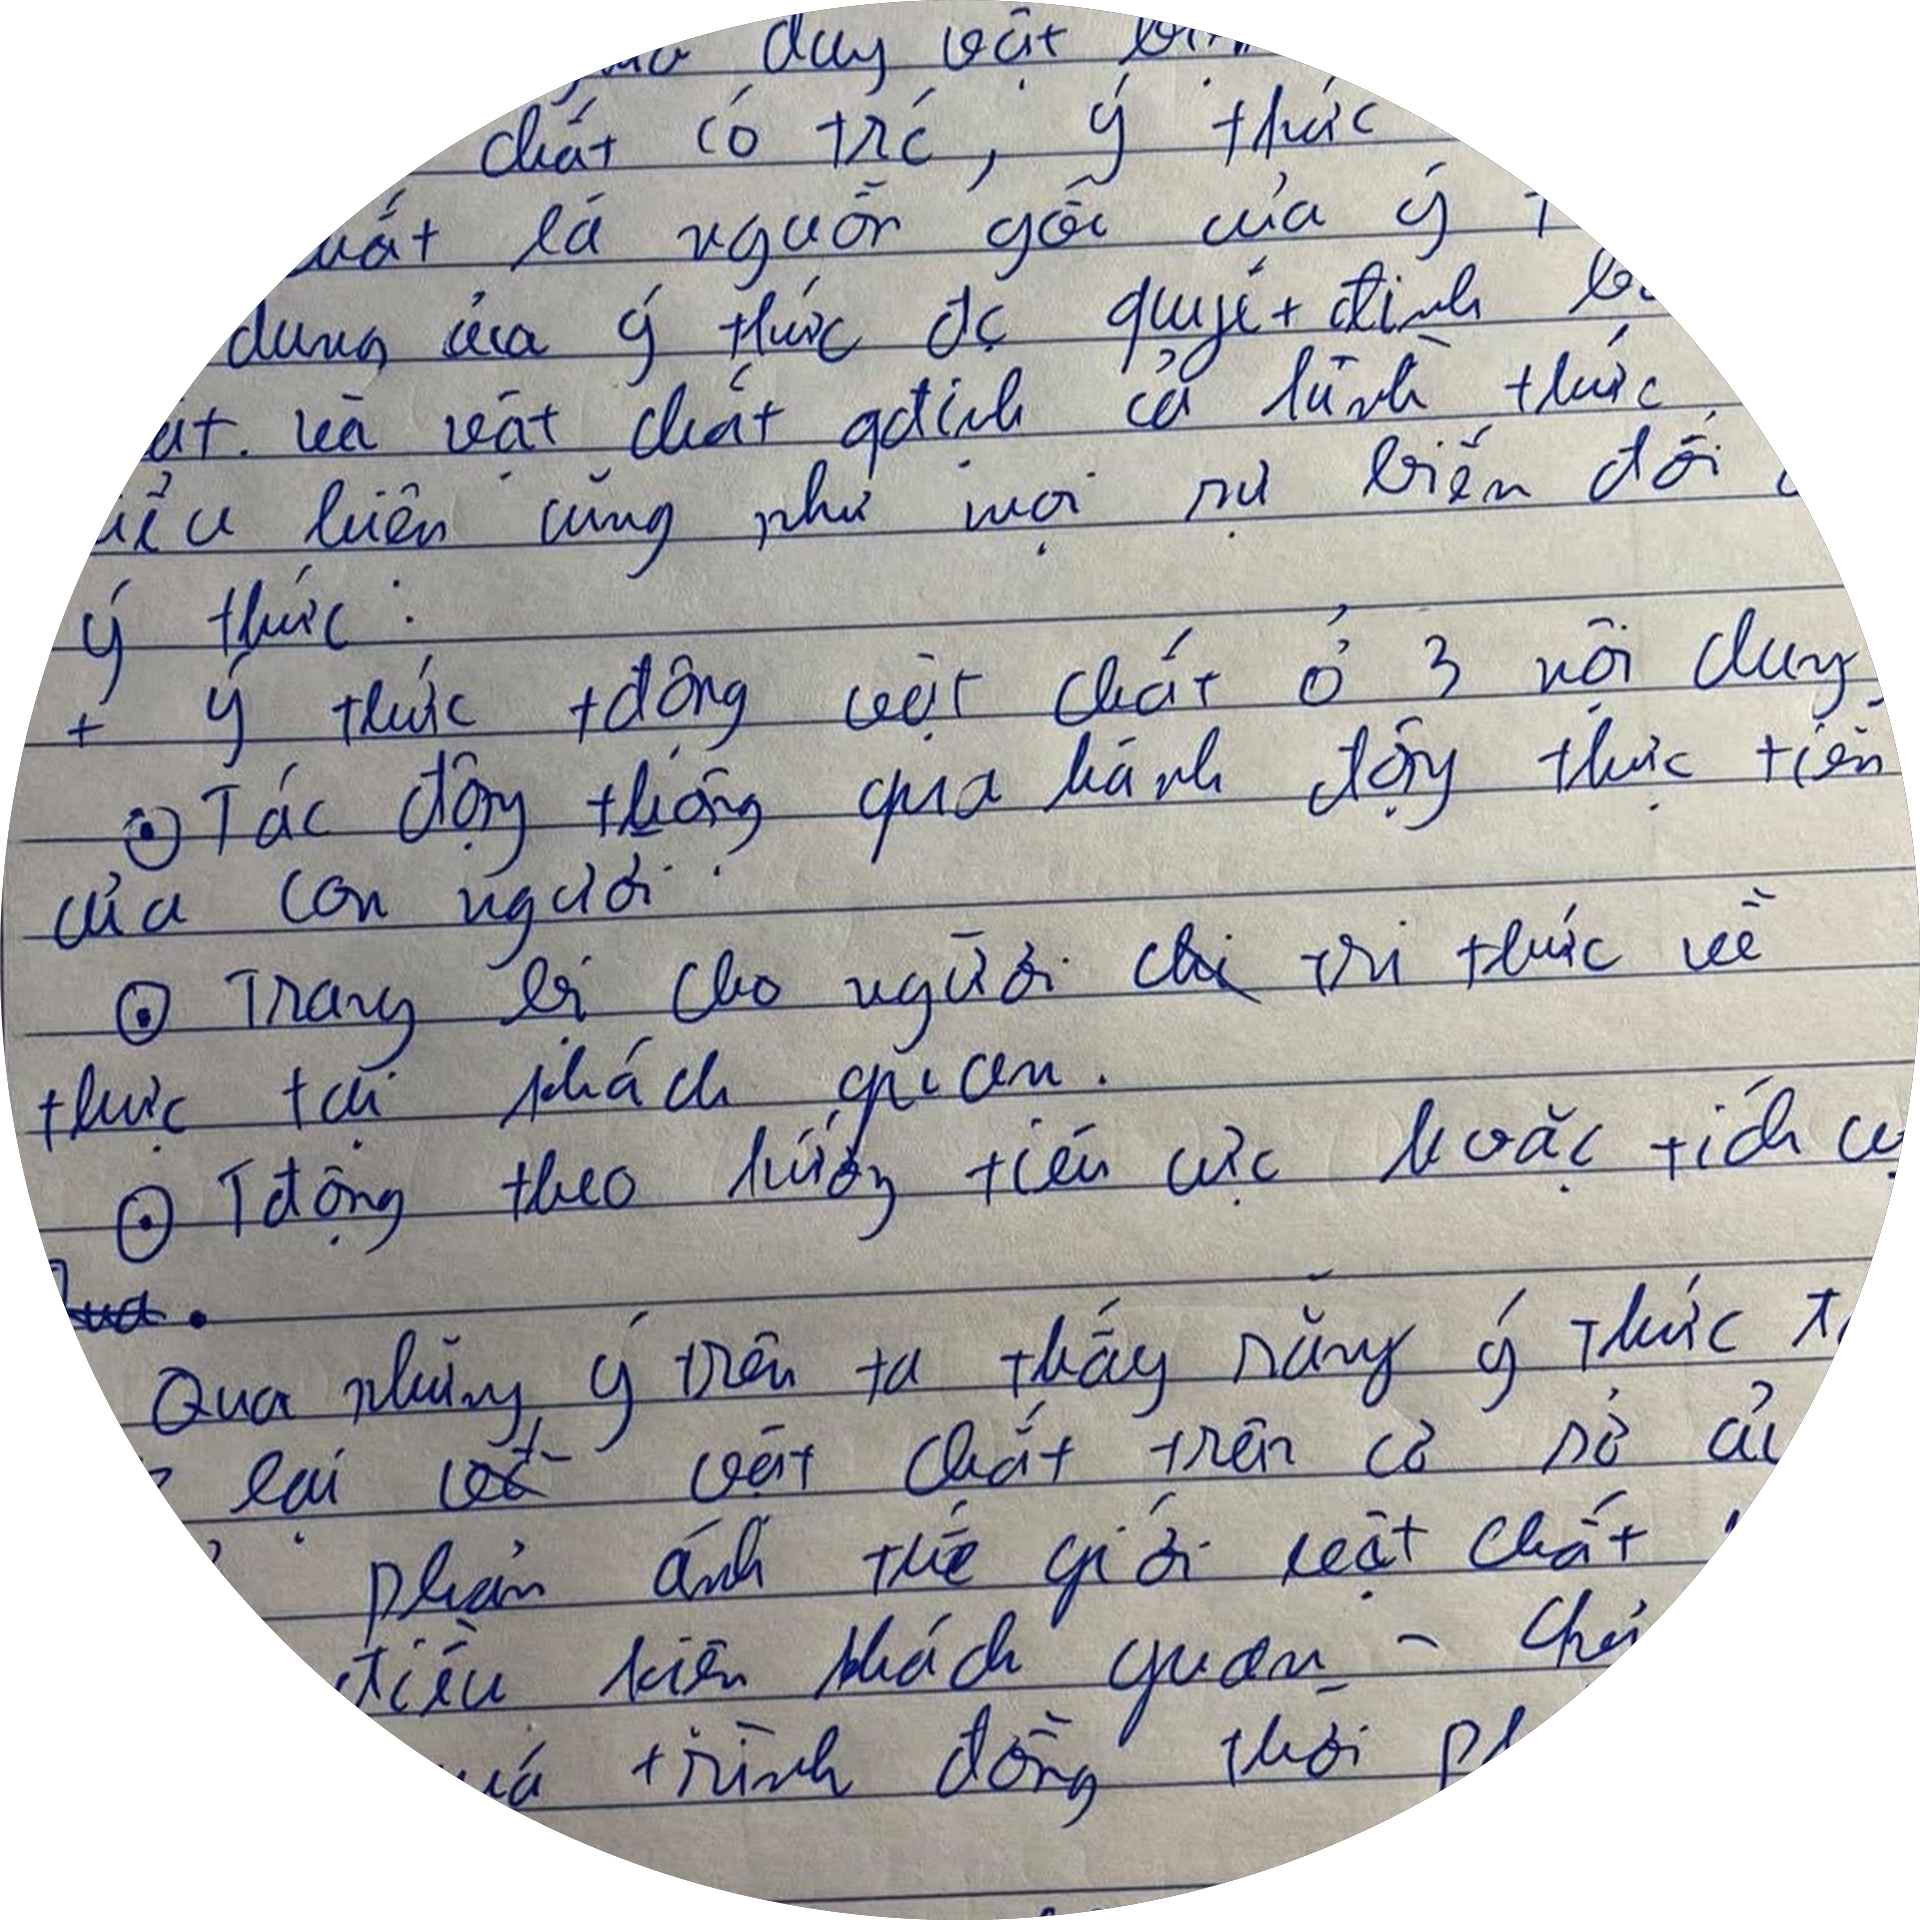 duy vật
chất có trc, ý thức
là nguồn gốc của ý
dung của ý thức đc quyết định
và vật chất qđịnh cả hình thức
hiện cũng như mọi sự biến đổi
ý thức:
+ ý thức tđộng vật chất ở 3 nội dung
⊙ Tác động thông qua hành động thực tiễn
của con người.
⊙ Trang bị cho người tri thức về
thực tại khách quan.
⊙ Tđộng theo hướng tiêu cực hoặc tích
Qua những ý trên ta thấy rằng ý thức
lại vật chất trên cơ sở
phản ánh thế giới vật chất
điều kiện khách quan -
trình đồng thời